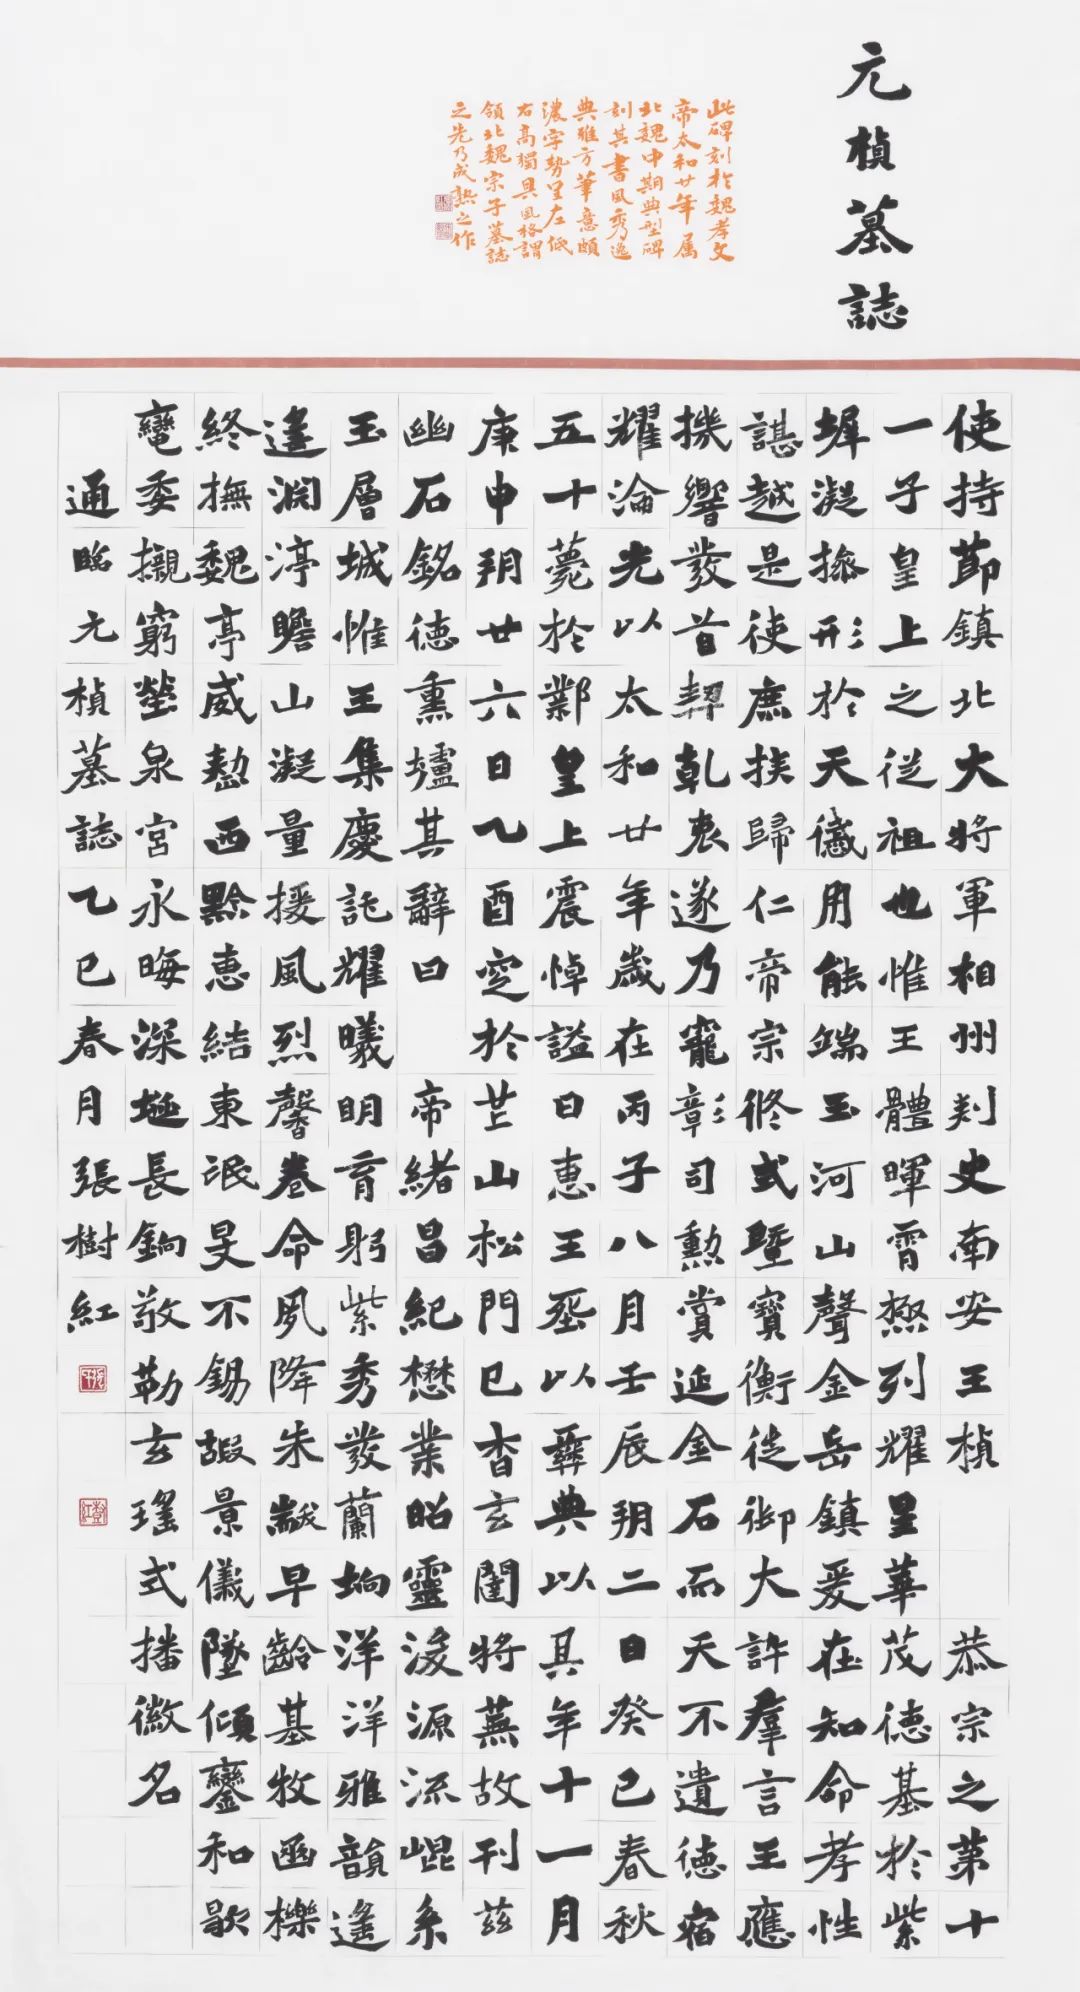 元楨墓誌
此碑刻於魏孝文
帝太和廿年属
北魏中期典型碑
刻其書風秀逸
典雅方筆意頗
濃字勢呈左低
右高獨具風格謂
領北魏宗子墓誌
之先乃成熟之作
使持節鎮北大將軍相州刾史南安王楨 恭宗之第十
一子皇上之從祖也惟王體暉霄極列耀星華茂德基於紫
墀凝操形於天儀用能端玉河山聲金岳鎮爰在知命孝性
諶越是使庶族歸仁帝宗攸式暨寳衡徙御大許羣言王應
機響發首契乹衷遂乃寵彰司勳賞延金石而天不遺德宿
耀淪光以太和廿年歲在丙子八月壬辰朔二日癸巳春秋
五十薨於鄴皇上震悼謚曰惠王㙋以彝典以其年十一月
庚申朔廿六日乙酉窆於芒山松門巳杳玄闈將蕪故刊兹
幽石銘德熏壚其辭曰 帝緒昌紀懋業昭靈浚源流崐系
玉層城惟王集慶託耀曦明育躬紫秀發蘭坰洋洋雅韻遙
遙渊渟瞻山凝量援風烈馨卷命夙降朱黻早齡基牧函櫟
終撫魏亭威懃西黔惠結東氓旻不錫嘏景儀墜傾鑾和歇
鸞委櫬窮塋泉宮永晦深埏長銄敬勒玄瑤式播徽名
通臨元楨墓誌乙巳春月張樹紅